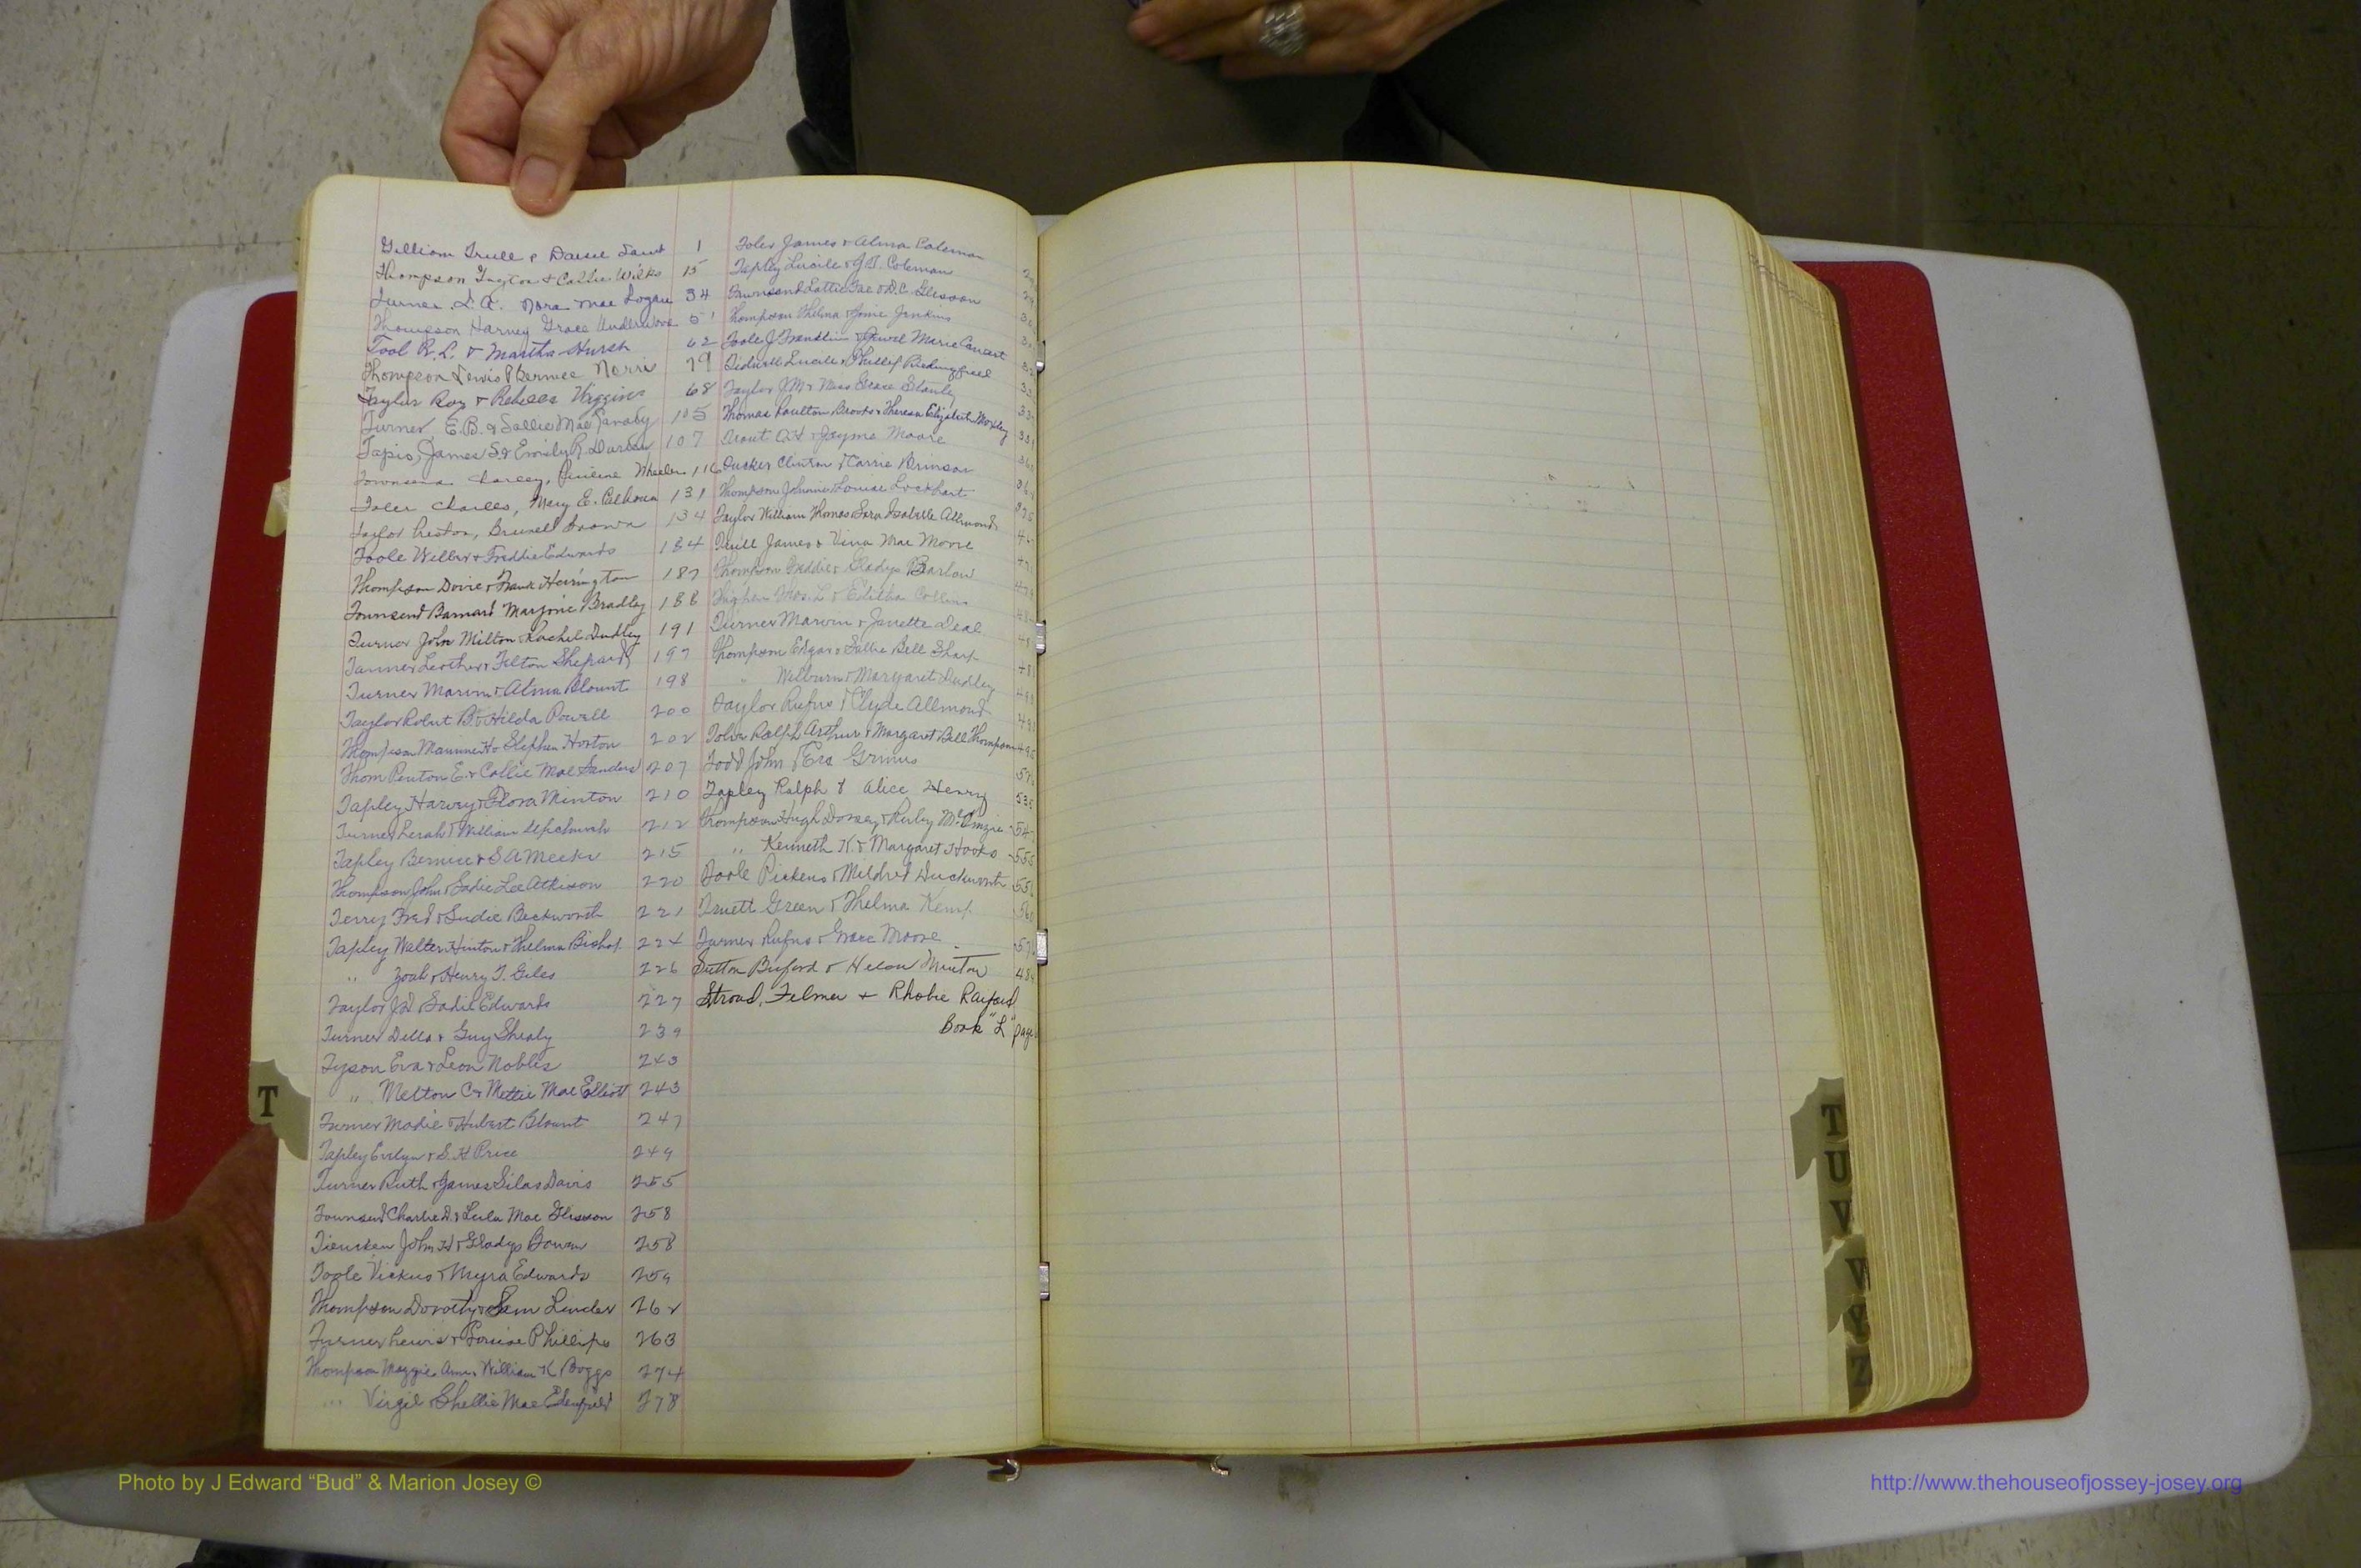 Gilliam Trull & Daisie 1
Thompson & Callie Wilks 15
Turner L.A. Nora Mae Logan 34
Thompson Harvey Grace Underwood 51
Tool R.L. & Martha Hursh 62
Thompson Lewis Bernice Norris 79
Taylor Roy & Rebecca Higgins 68
Turner E.B. & Sallie Mae Canady 105
Tapis, James S. & Emily R. Durden 107
Townsend Charley, Pauline Wheeler 116
Toler Charles, Mary E. Calhoun 131
Taylor Preston, Brunell Brown 134
Toole Wilbur & Freddie Edwards 184
Thompson Dovie & Frank Herrington 187
Townsend Barnard Marjorie Bradley 188
Turner John Milton & Rachel Dudley 191
Tanner & Felton Shepard 197
Turner Marvin & Alma Blount 198
Taylor Robert B. & Hilda Powell 200
Thompson & Stephen Horton 202
Thom Penton E. & Callie Mae Sanders 207
Tapley Harvey & Flora Minton 210
Turner Leah & William Upchurch 212
Tapley Bernice & S A Meeks 215
Thompson John & Sadie Lee Atkison 220
Terry Fred & Sudie Beckworth 221
Tapley Walter Hinton & Thelma Bishop 224
" Zoah & Henry T. Giles 226
Taylor J D & Sadie Edwards 227
Turner Della & Guy Shealy 239
Tyson Eva & Leon Nobles 243
" Melton C & Mettie Mae Elliott 243
Turner Madie & Hubert Blount 247
Tapley Evelyn & S. H Price 249
Turner Ruth & James Silas Davis 255
Townsend Charlie D. & Lula Mae Glisson 258
Tiencken John H & Gladys Bowen 258
Toole Vickus & Myra Edwards 259
Thompson Dorothy & Sam Linder 262
Turner Lewis & Louise Phillips 263
Thompson Maggie Ann & William K Boggs 274
" Virgil & Shellie Mae Edenfield 278
Toler James & Alma Coleman
Tapley Lucile & J.T. Coleman
Townsend Lottie Fae & D.C. Glisson
Thompson Thelma & Jonie Jenkins
Toole J Franklin & Jewel Marie Canant
Tidwell Lucile & Phillip Riedingfield
Taylor J M & Miss Grace Stanley
Thomas Poulton Brooks & Theresa Elizabeth Moxley
Trout & Jayme Moore
Tucker Clinton & Carrie Brinson
Thompson Johnnie Louise Lockhart
Taylor William Thomas & Sara Isabelle Allmond
Trull James & Vina Mae Moore
Thompson Freddie & Gladys Barlow
Thos. L & Editha Collins
Turner Marvin & Janette Deal
Thompson Edgar & Sallie Bell Sharp
" Wilburn & Margaret Dudley
Taylor Rufus & Clyde Allmond
Ralph Arthur & Margaret Bell Thompson
Todd John & Era Grimes
Tapley Ralph & Alice Henry
Thompson Hugh Dorsey & Ruby
" Kenneth K. & Margaret Hooks
Toole Pickens & Mildred Duckworth
Truett Green & Thelma Kemp
Turner Rufus & Grace Moore
Sutton Buford & Helon Minton
Stroud, Felmer & Rhobie Rayford
Book "L" page
T
T
U
V
W
Y
Z
Photo by J Edward “Bud” & Marion Josey ©
http://www.thehouseofjossey-josey.org